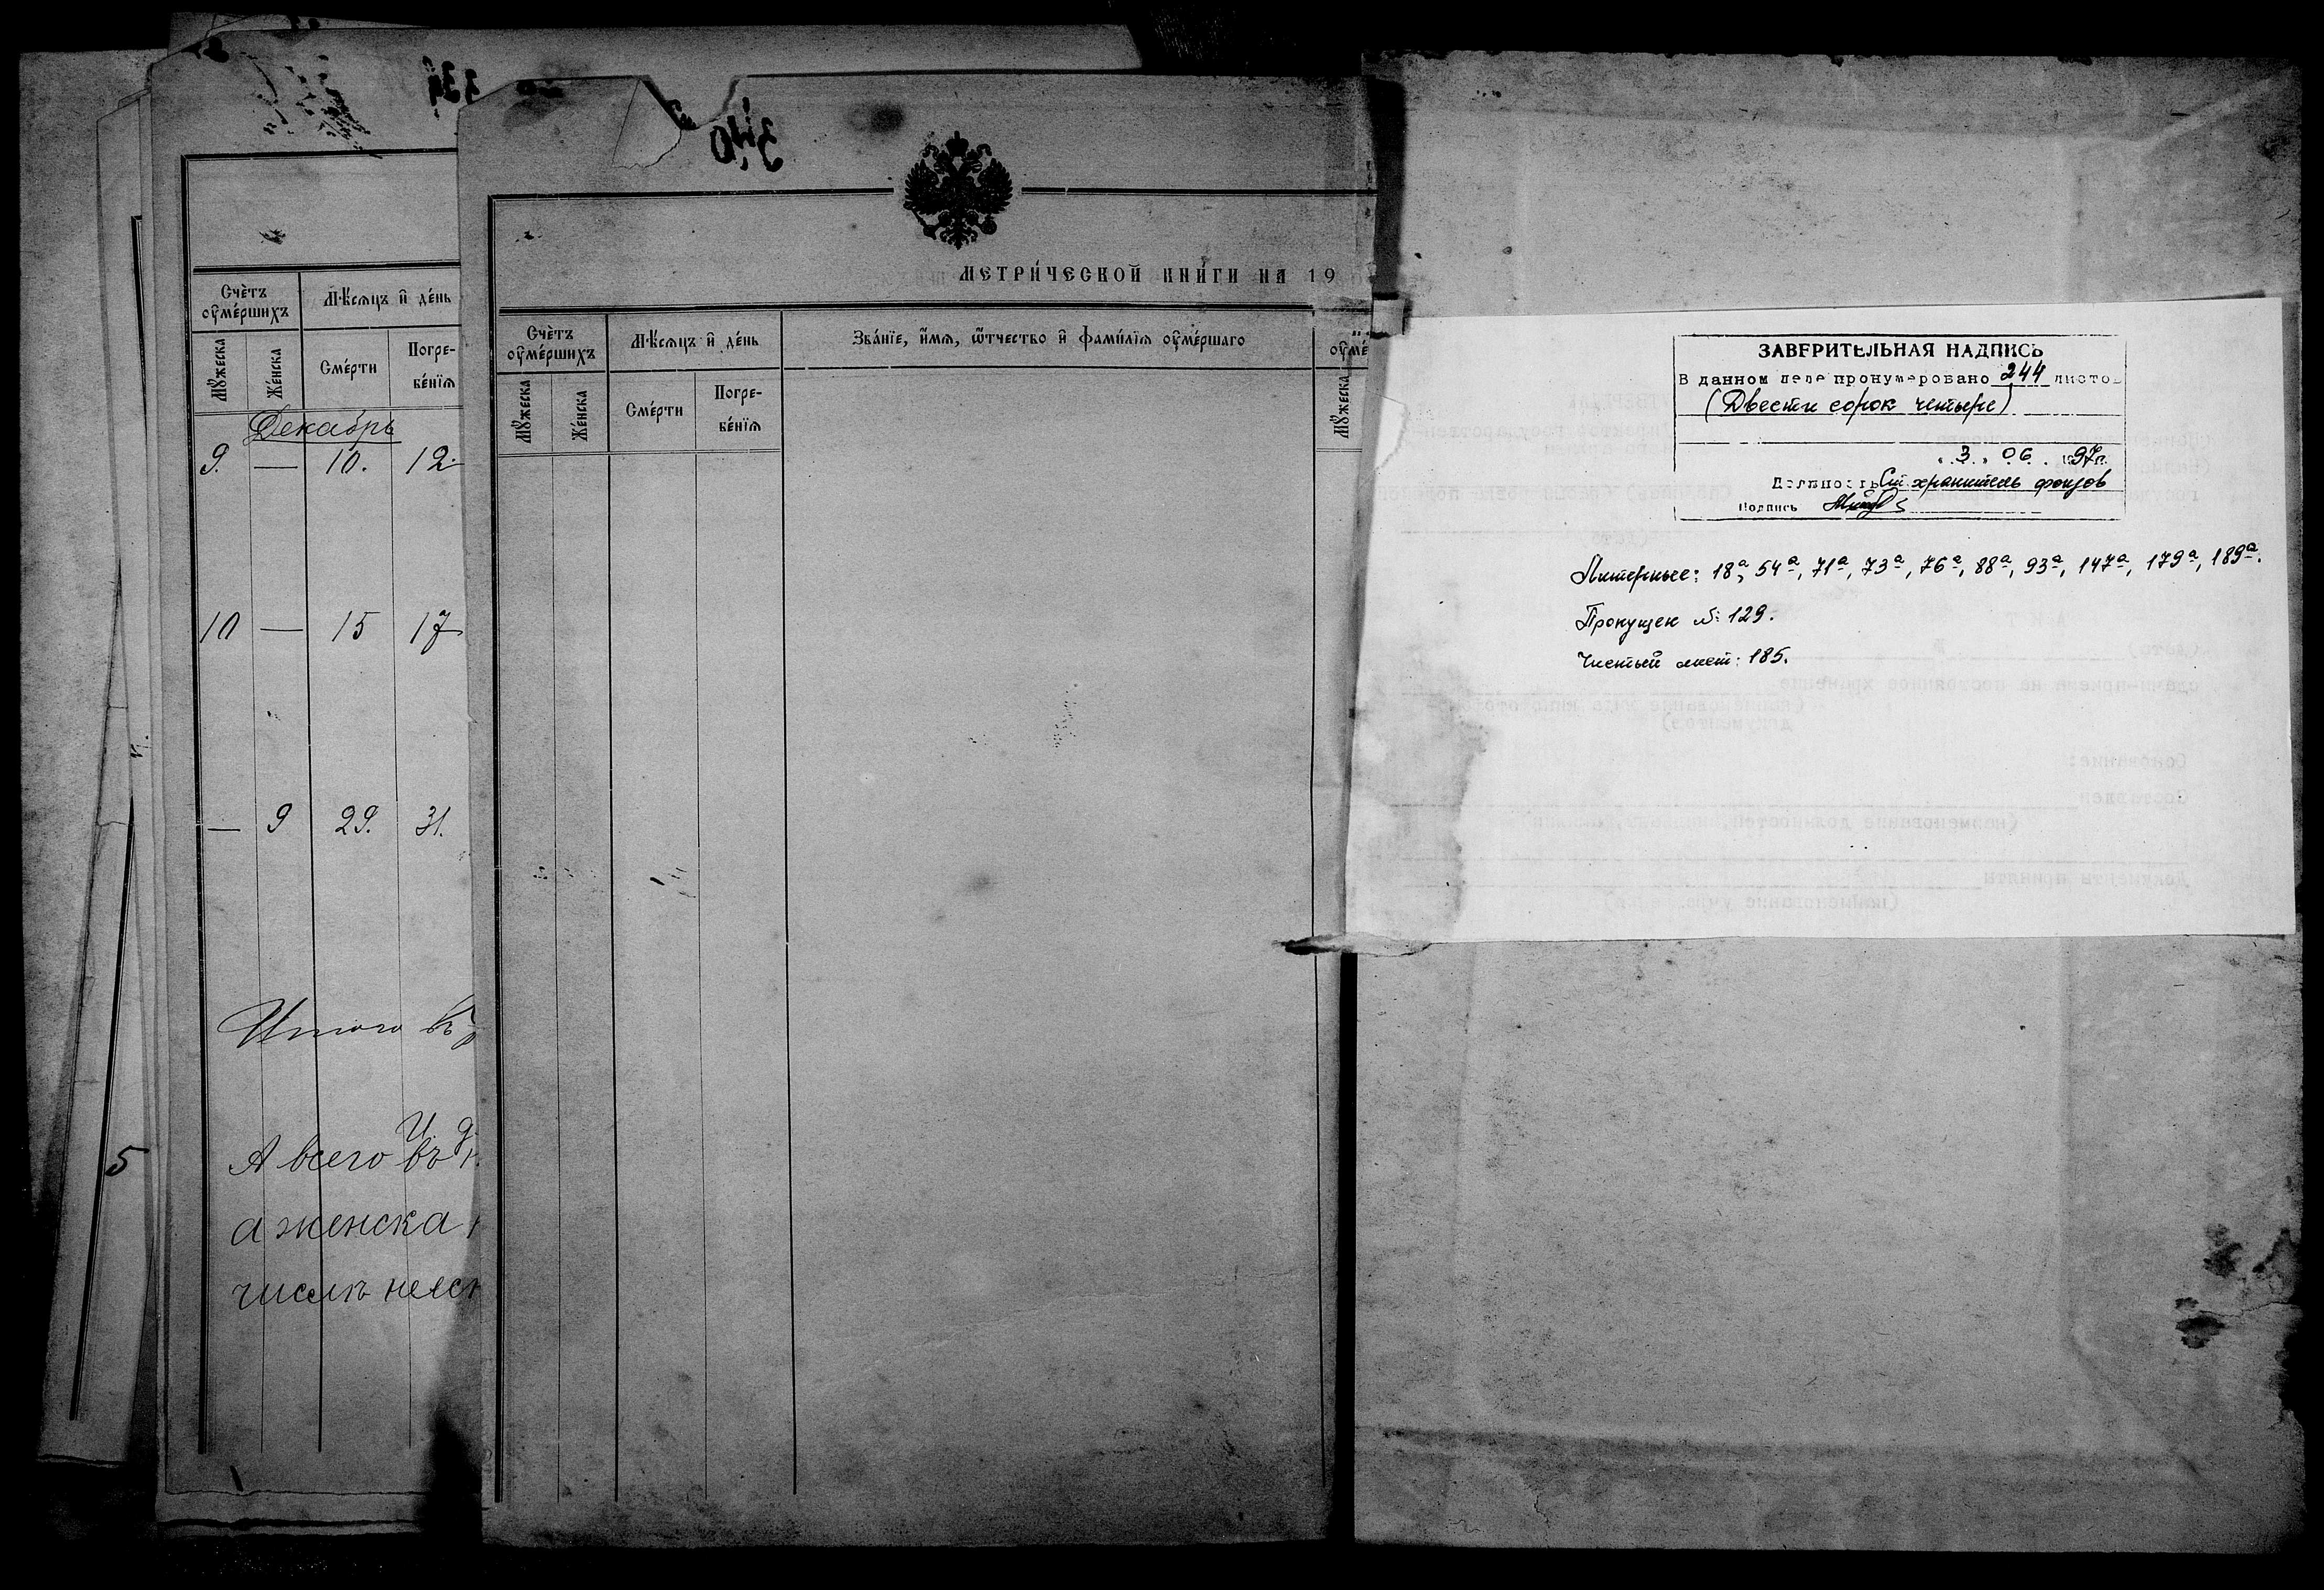 Счѐтъ
ᲂу҆ме́ршихъ
Мѣ́сѧцъ и҆ де́нь
Мꙋ́жеска
Же́нска
Сме́рти
Погре-
бе́нїѧ
Декабрь
9. — 10. 12.
10 — 15 17
— 9 29. 31.
Итого въ
А всего въ
а женска
числѣ
5
340
МЕТРИ́ЧЕСКОЙ КНИ́ГИ НА 19
Счѐтъ
ᲂу҆ме́ршихъ
Мѣ́сѧцъ и҆ де́нь
Зва́нїе, и҆́мѧ, ѻ҆́тчество и҆ фами́лїѧ ᲂу҆ме́ршаго
Мꙋ́жеска
Же́нска
Сме́рти
Погре-
бе́нїѧ
Мꙋ́жеска
ЗАВЕРИТЕЛЬНАЯ НАДПИСЬ
В данном деле пронумеровано 244 листов
(Двести сорок четыре)
"3" 06 1997г.
Должность Ст. хранитель фондов
Подпись
Литерные: 18а, 54а, 71а, 73а, 76а, 88а, 93а, 147а, 179а, 189а.
Пропущен №: 129.
Чистый лист: 185.